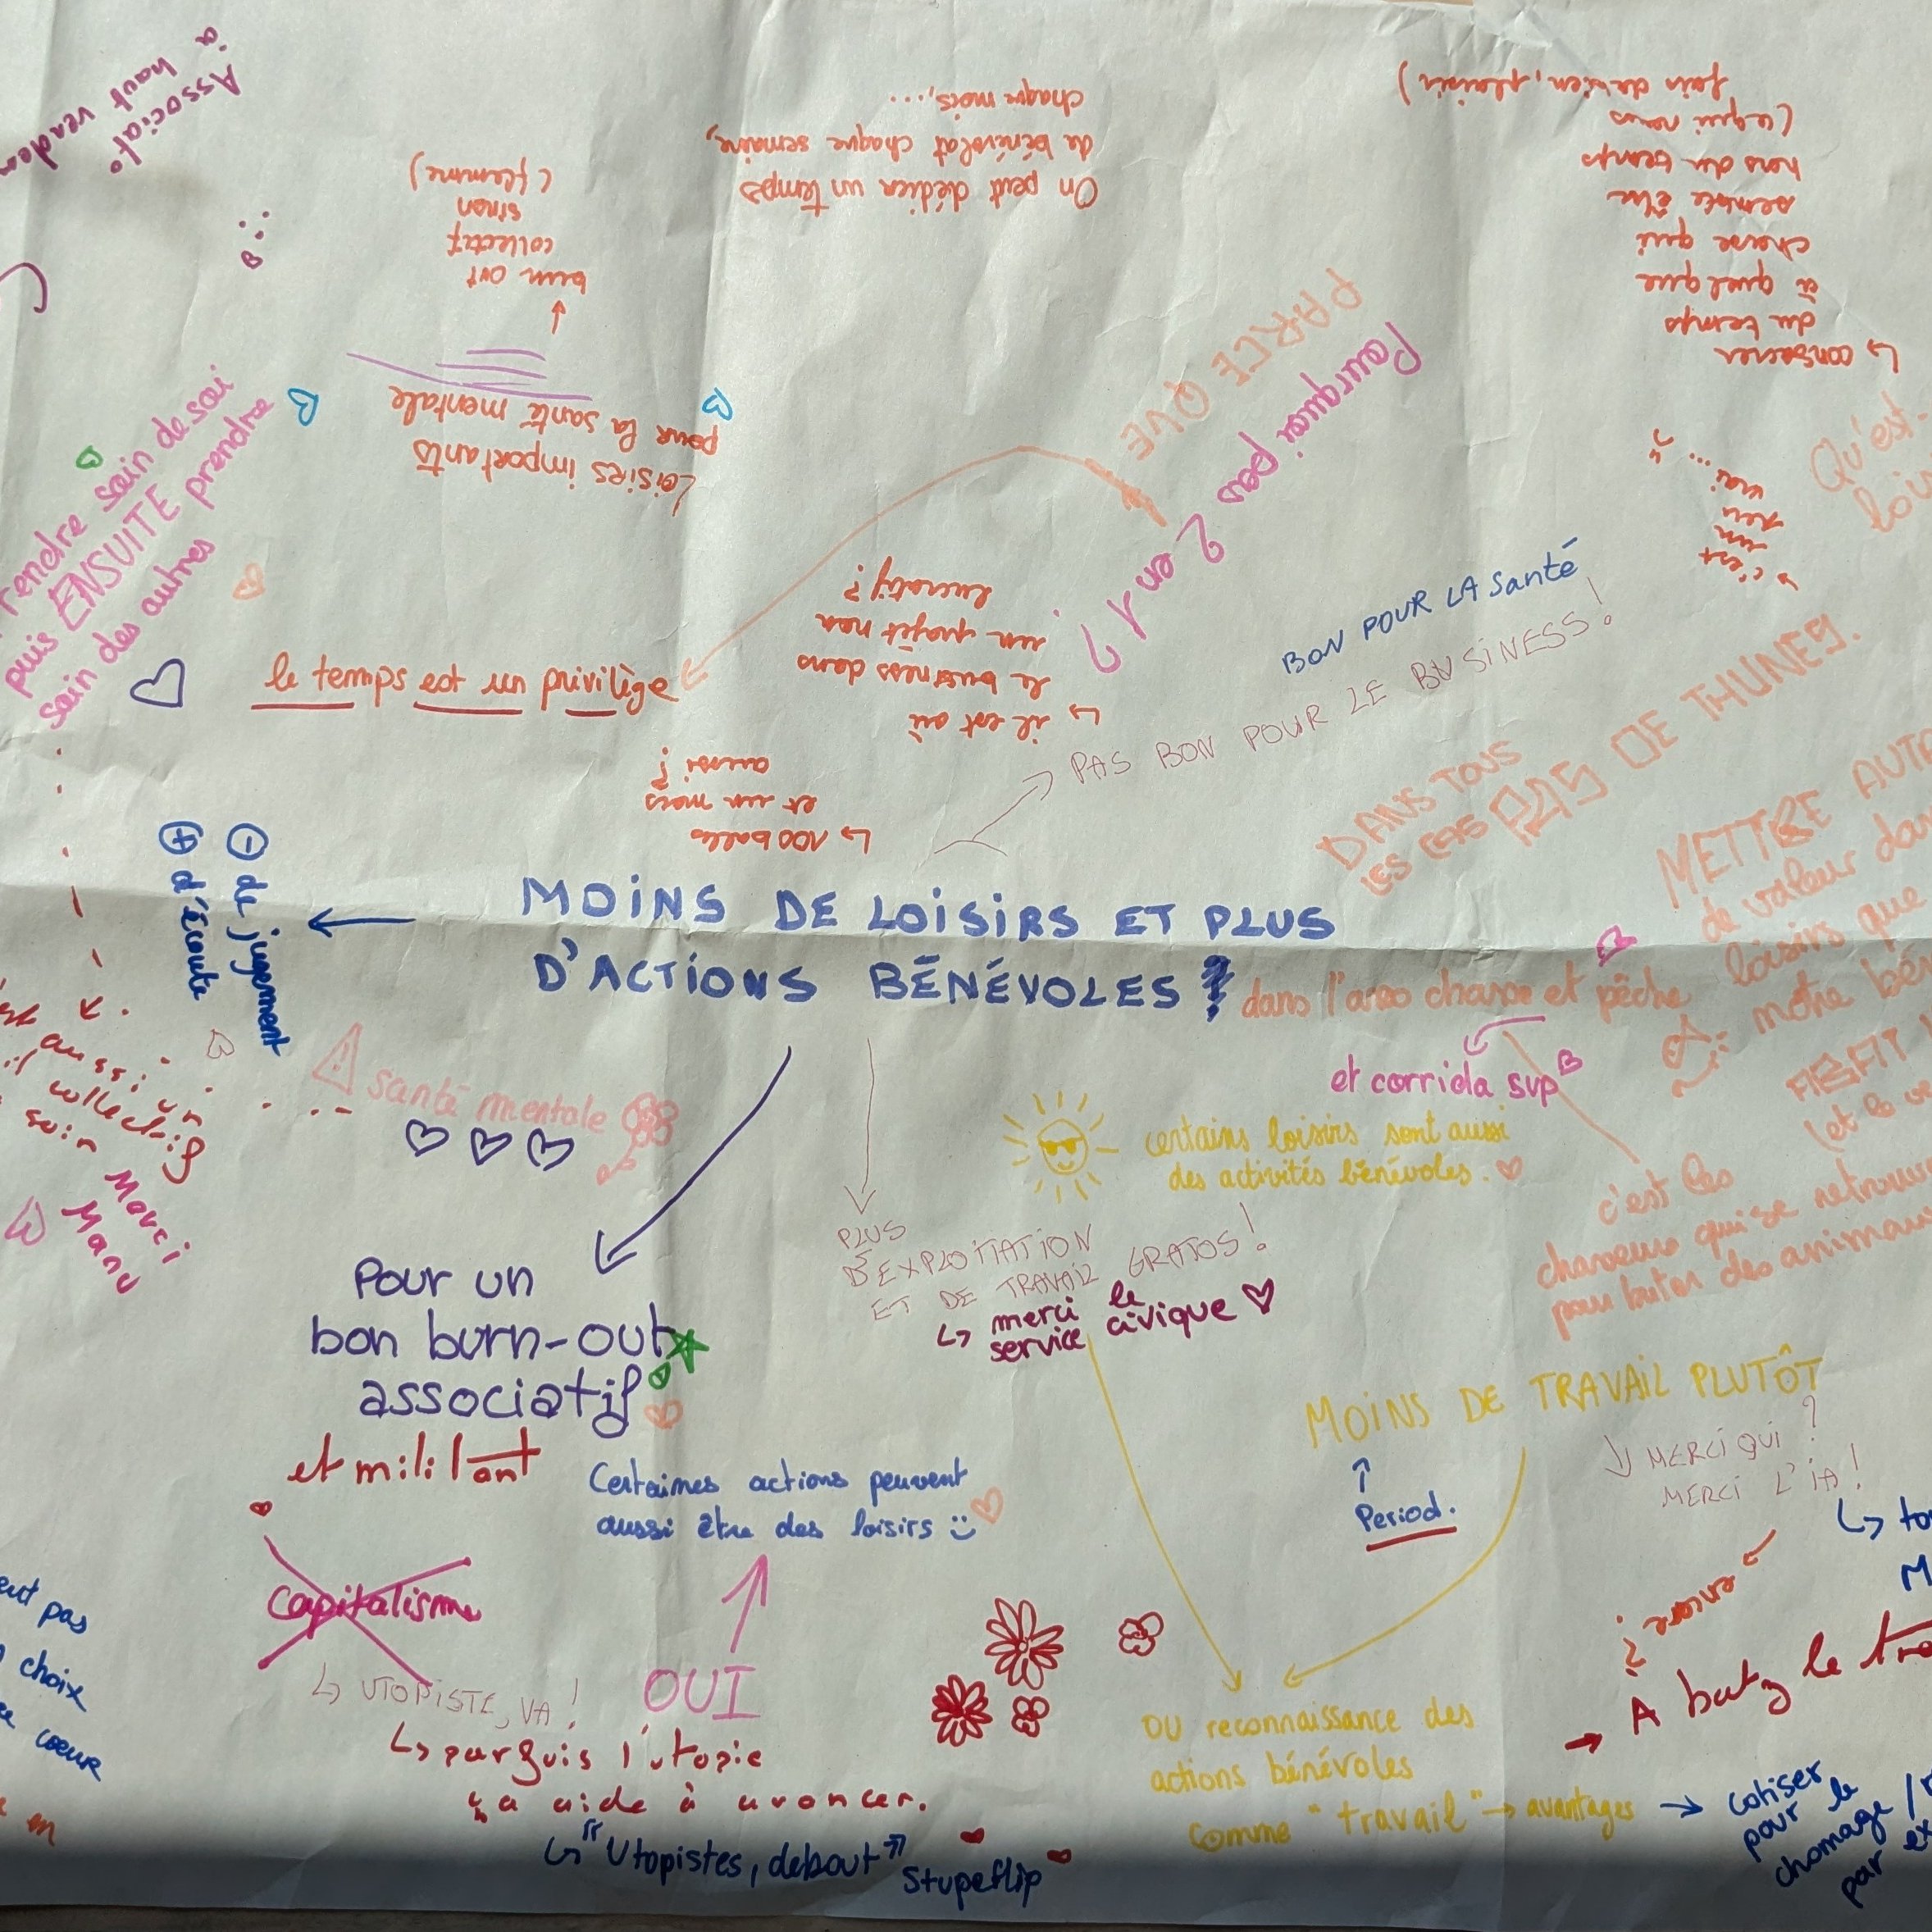 Associat°
à haut vendeur
burn out
collectif
sinon
(flemme)
Loisirs importants
pour la santé mentale
On peut dédier un temps
de bénévolat chaque semaine,
chaque mois,...
↳ consacrer
du temps
à quelque
chose qui
semble être
hors du temps
(qui nous
fait du bien, plaisir)
PARCE QUE
Pourquoi pas 2 en 1 ?
↳ c'est
un
peu
vrai
...
Qu'est-
prendre soin de soi
puis ENSUITE prendre
soin des autres
le temps est un privilège
↳ il est où
le business dans
un projet non
lucratif ?
↳ 100 balles
et un mars
aussi ?
BON POUR LA santé
PAS BON POUR LE BUSINESS !
DANS TOUS
LES CAS PAS DE THUNES.
METTRE AUTA
de valeur da
loisirs que
notre bé
⊖ de jugement
⊕ d'écoute
MOINS DE LOISIRS ET PLUS
D'ACTIONS BÉNÉVOLES ?
dans l'asso chasse et pêche
et corrida svp
c'est les
chasseurs qui se retrouve
pour buter des animaux
aussi un
collectif
soin
Merci
Manu
santé mentale
certains loisirs sont aussi
des activités bénévoles.
PLUS
D'EXPLOITATION
ET DE TRAVAIL GRATOS !
↳ merci le
service civique
Pour un
bon burn-out
associatif
et militant
Certaines actions peuvent
aussi être des loisirs
OUI
capitalisme
↳ UTOPISTE, VA !
↳ parfois l'utopie
ça aide à avancer.
↳ "Utopistes, debout" Stupeflip
MOINS DE TRAVAIL PLUTÔT
↑
Period.
↳ MERCI QUI ?
MERCI L'IA !
↳ to
encore ?
→ A batz le tra
OU reconnaissance des
actions bénévoles
comme "travail" → avantages → cotiser
pour le
chomage /
par ex
pas
choix
coeur
en